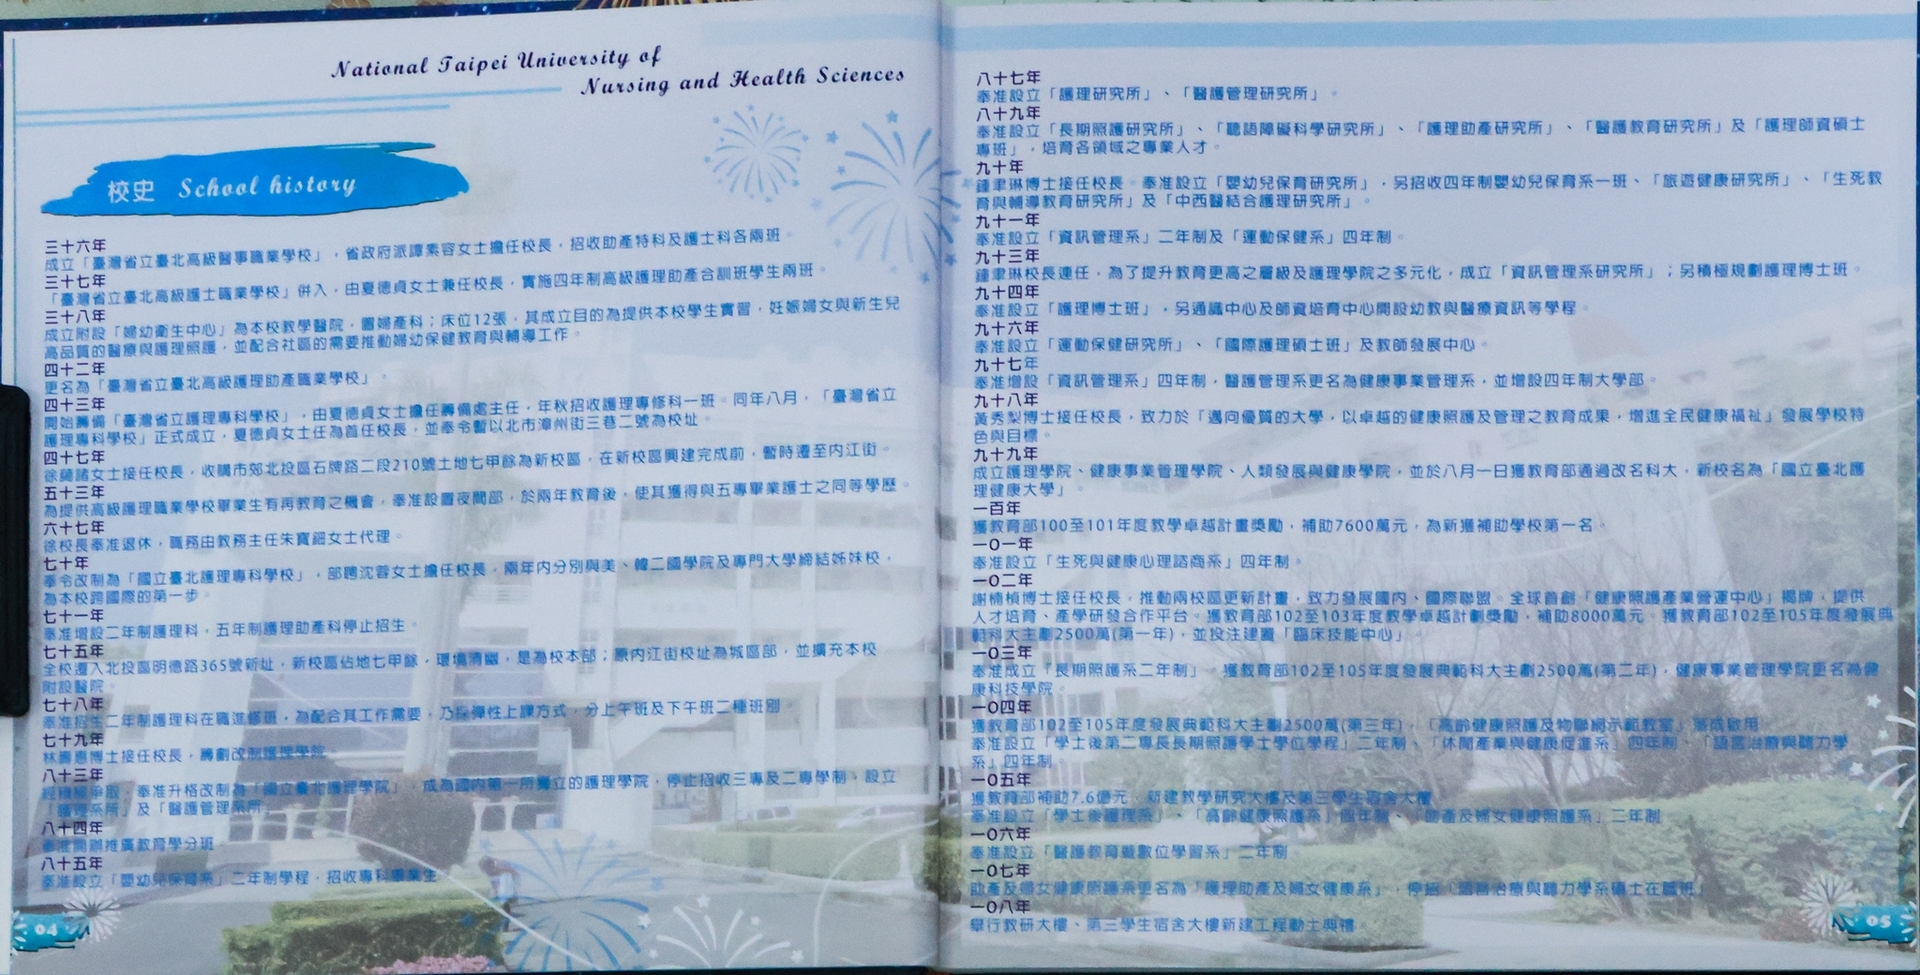 National Taipei University of
Nursing and Health Sciences
校史 School history
三十六年
成立「臺灣省立臺北高級醫事職業學校」，省政府派譚素容女士擔任校長，招收助產特科及護士科各兩班。
三十七年
「臺灣省立臺北高級護士職業學校」併入，由夏德貞女士兼任校長，實施四年制高級護理助產合訓班學生兩班。
三十八年
成立附設「婦幼衛生中心」為本校教學醫院，置婦產科；床位12張，其成立目的為提供本校學生實習，妊娠婦女與新生兒
高品質的醫療與護理照護，並配合社區的需要推動婦幼保健教育與輔導工作。
四十二年
更名為「臺灣省立臺北高級護理助產職業學校」。
四十三年
開始籌備「臺灣省立護理專科學校」，由夏德貞女士擔任籌備處主任，年秋招收護理專修科一班。同年八月，「臺灣省立
護理專科學校」正式成立，夏德貞女士任為首任校長，並奉令暫以北市漳州街三巷二號為校址。
四十七年
徐藹諸女士接任校長，收購市郊北投區石牌路二段210號土地七甲餘為新校區，在新校區興建完成前，暫時遷至內江街。
五十三年
為提供高級護理職業學校畢業生有再教育之機會，奉准設置夜間部，於兩年教育後，使其獲得與五專畢業護士之同等學歷。
六十七年
徐校長奉准退休，職務由教務主任朱寶鈿女士代理。
七十年
奉令改制為「國立臺北護理專科學校」，部聘沈蓉女士擔任校長，兩年內分別與美、韓二國學院及專門大學締結姊妹校，
為本校跨國際的第一步。
七十一年
奉准增設二年制護理科，五年制護理助產科停止招生。
七十五年
全校遷入北投區明德路365號新址，新校區佔地七甲餘，環境清幽，是為校本部；原內江街校址為城區部，並擴充本校
附設醫院。
七十八年
奉准招生二年制護理科在職進修班，為配合其工作需要，乃採彈性上課方式，分上午班及下午班二種班別。
七十九年
林壽惠博士接任校長，籌劃改制護理學院。
八十三年
經積極爭取，奉准升格改制為「國立臺北護理學院」，成為國內第一所獨立的護理學院，停止招收三專及二專學制，設立
「護理系所」及「醫護管理系所」。
八十四年
奉准開辦推廣教育學分班
八十五年
奉准設立「嬰幼兒保育系」二年制學程，招收專科畢業生
04
八十七年
奉准設立「護理研究所」、「醫護管理研究所」。
八十九年
奉准設立「長期照護研究所」、「聽語障礙科學研究所」、「護理助產研究所」、「醫護教育研究所」及「護理師資碩士
專班」，培育各領域之專業人才。
九十年
鍾聿琳博士接任校長。奉准設立「嬰幼兒保育研究所」，另招收四年制嬰幼兒保育系一班、「旅遊健康研究所」、「生死教
育與輔導教育研究所」及「中西醫結合護理研究所」。
九十一年
奉准設立「資訊管理系」二年制及「運動保健系」四年制。
九十三年
鍾聿琳校長連任，為了提升教育更高之層級及護理學院之多元化，成立「資訊管理系研究所」；另積極規劃護理博士班。
九十四年
奉准設立「護理博士班」，另通識中心及師資培育中心開設幼教與醫療資訊等學程。
九十六年
奉准設立「運動保健研究所」、「國際護理碩士班」及教師發展中心。
九十七年
奉准增設「資訊管理系」四年制，醫護管理系更名為健康事業管理系，並增設四年制大學部。
九十八年
黃秀梨博士接任校長，致力於「邁向優質的大學，以卓越的健康照護及管理之教育成果，增進全民健康福祉」發展學校特
色與目標。
九十九年
成立護理學院、健康事業管理學院、人類發展與健康學院，並於八月一日獲教育部通過改名科大，新校名為「國立臺北護
理健康大學」。
一百年
獲教育部100至101年度教學卓越計畫獎勵，補助7600萬元，為新獲補助學校第一名。
一O一年
奉准設立「生死與健康心理諮商系」四年制。
一O二年
謝楠楨博士接任校長，推動兩校區更新計畫，致力發展國內、國際聯盟。全球首創「健康照護產業營運中心」揭牌，提供
人才培育、產學研發合作平台。獲教育部102至103年度教學卓越計劃獎勵，補助8000萬元。獲教育部102至105年度發展典
範科大主劃2500萬(第一年)，並投注建置「臨床技能中心」。
一O三年
奉准成立「長期照護系二年制」。獲教育部102至105年度發展典範科大主劃2500萬(第二年)，健康事業管理學院更名為健
康科技學院。
一O四年
獲教育部102至105年度發展典範科大主劃2500萬(第三年)，「高齡健康照護及物聯網示範教室」落成啟用
奉准設立「學士後第二專長長期照護學士學位學程」二年制、「休閒產業與健康促進系」四年制、「語言治療與聽力學
系」四年制。
一O五年
獲教育部補助7.6億元，新建教學研究大樓及第三學生宿舍大樓
奉准設立「學士後護理系」、「高齡健康照護系」四年制、「助產及婦女健康照護系」二年制
一O六年
奉准設立「醫護教育暨數位學習系」二年制
一O七年
助產及婦女健康照護系更名為「護理助產及婦女健康系」，停招「語言治療與聽力學系碩士在職班」
一O八年
舉行教研大樓、第三學生宿舍大樓新建工程動土典禮
05